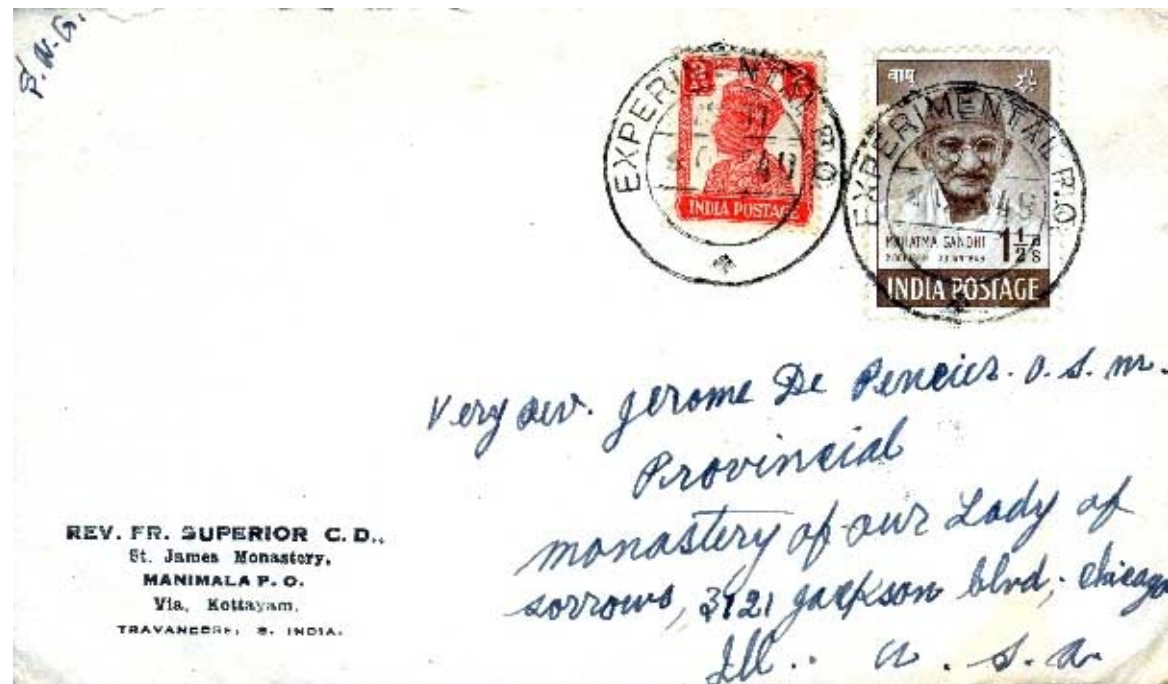 P.W.G.
EXPERIMENTAL P.O.
INDIA POSTAGE
EXPERIMENTAL P.O.
49
बापू
MAHATMA GANDHI
1 1/2 As
INDIA POSTAGE
Very Rev. Jerome De Pencier. O.S.M.
Provincial
monastery of our Lady of
sorrows, 3121 Jackson blvd; chicago
Ill.. U.S.A.
REV. FR. SUPERIOR C. D.,
St. James Monastery,
MANIMALA P. O.
Via. Kottayam.
TRAVANCORE, S. INDIA.